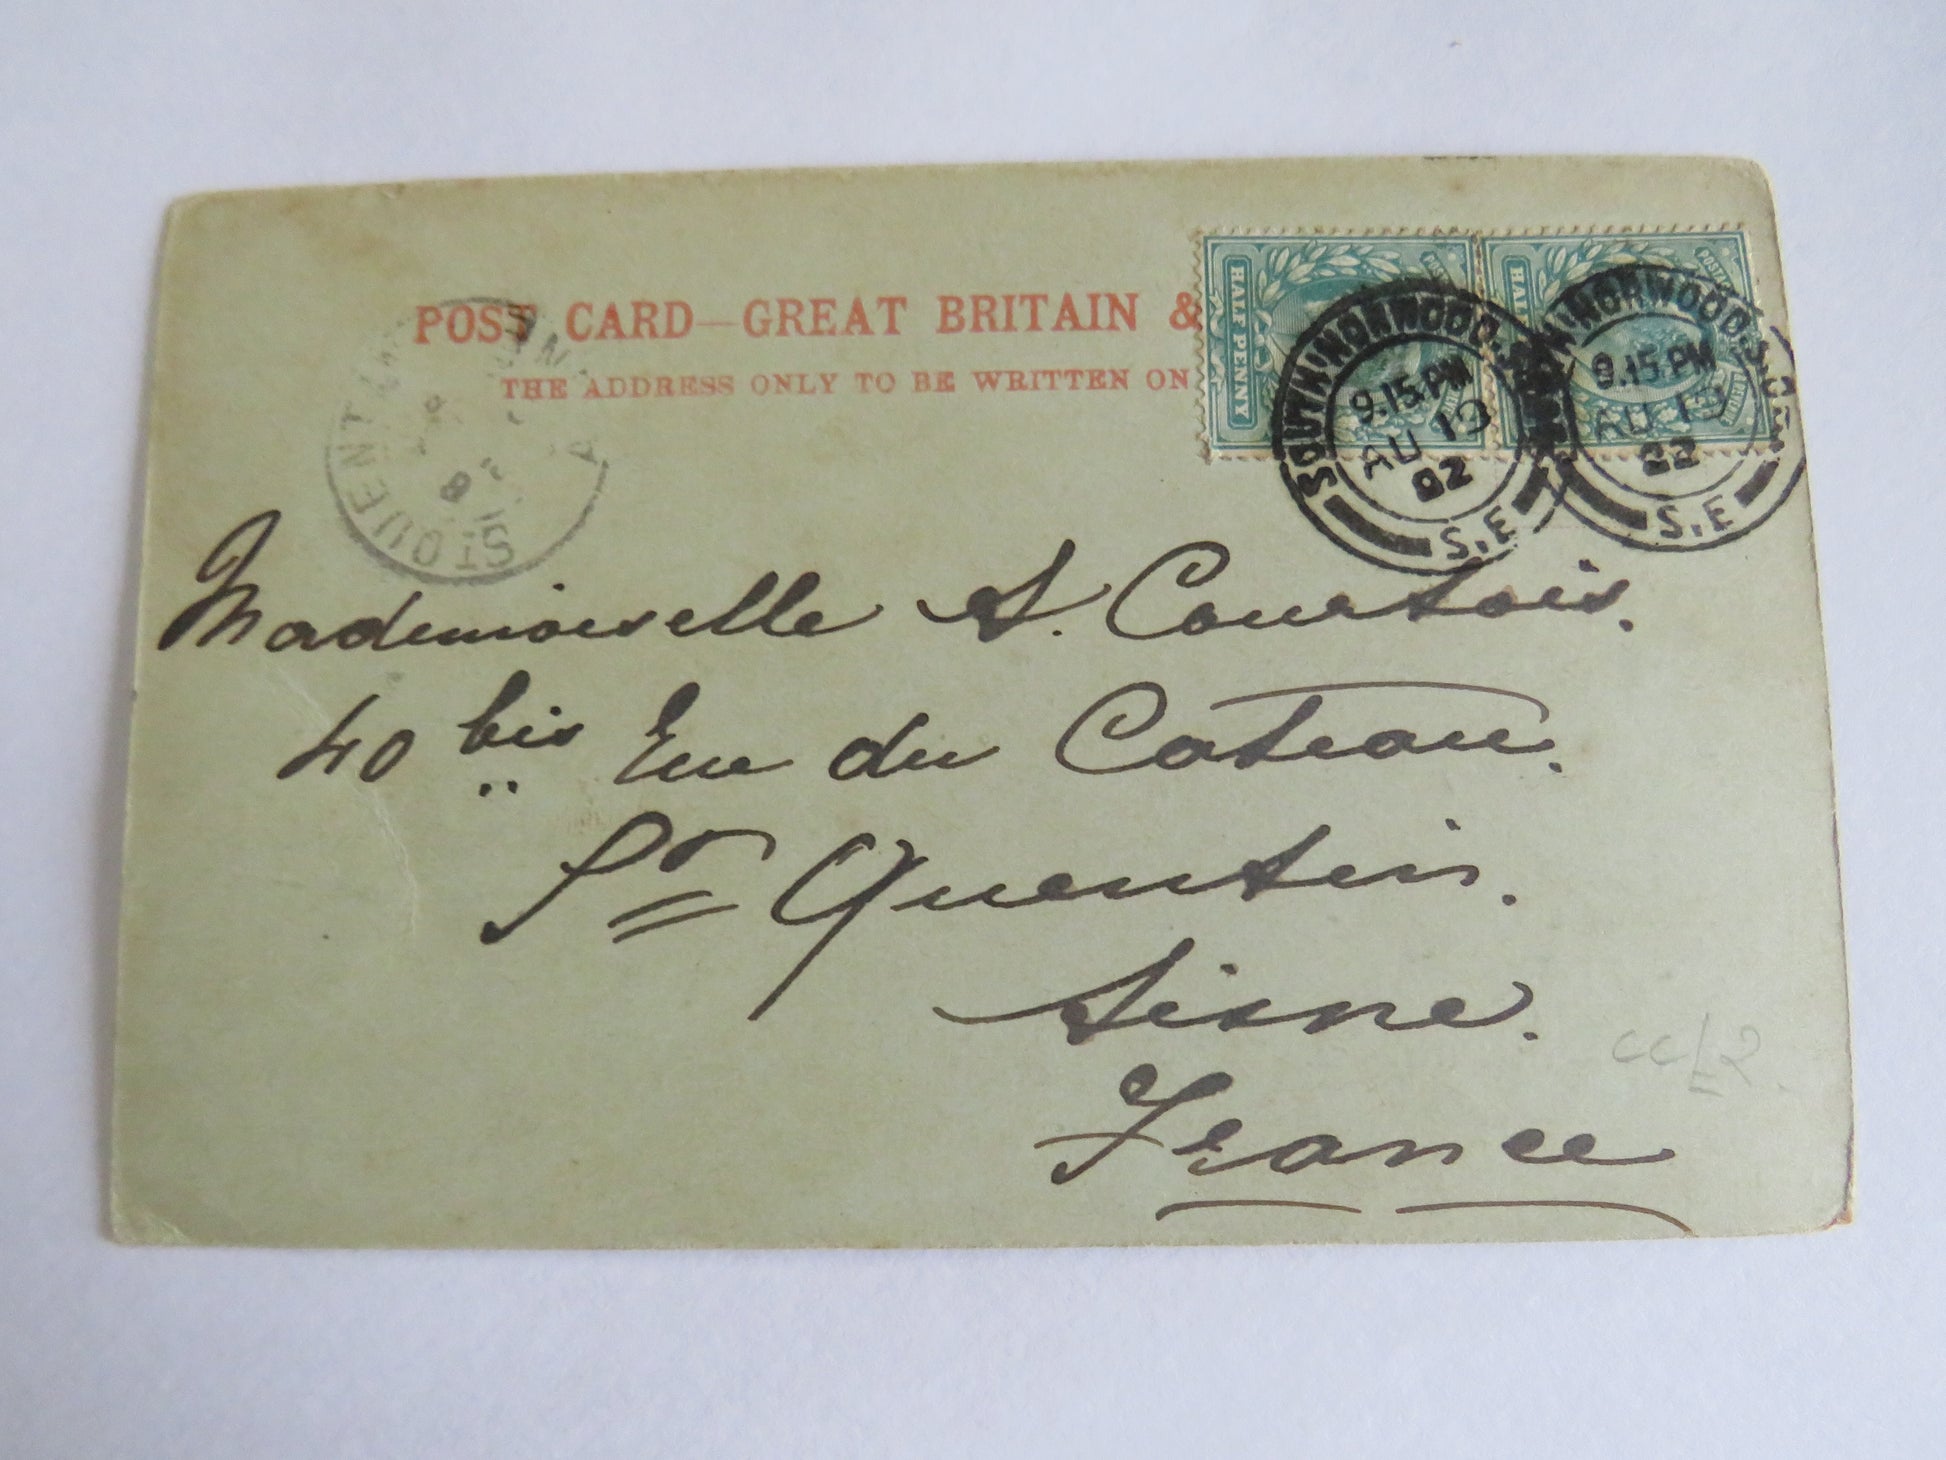 POST CARD—GREAT BRITAIN &
THE ADDRESS ONLY TO BE WRITTEN ON
HALF PENNY
SOUTH NORWOOD. S.O.
9.15.PM
AU 19
02
S.E
SOUTH NORWOOD. S.O.
9.15.PM
AU 19
02
S.E
ST QUENTIN
Mademoiselle A. Courtois.
40 bis Rue du Cateau.
St Quentin.
Aisne.
France